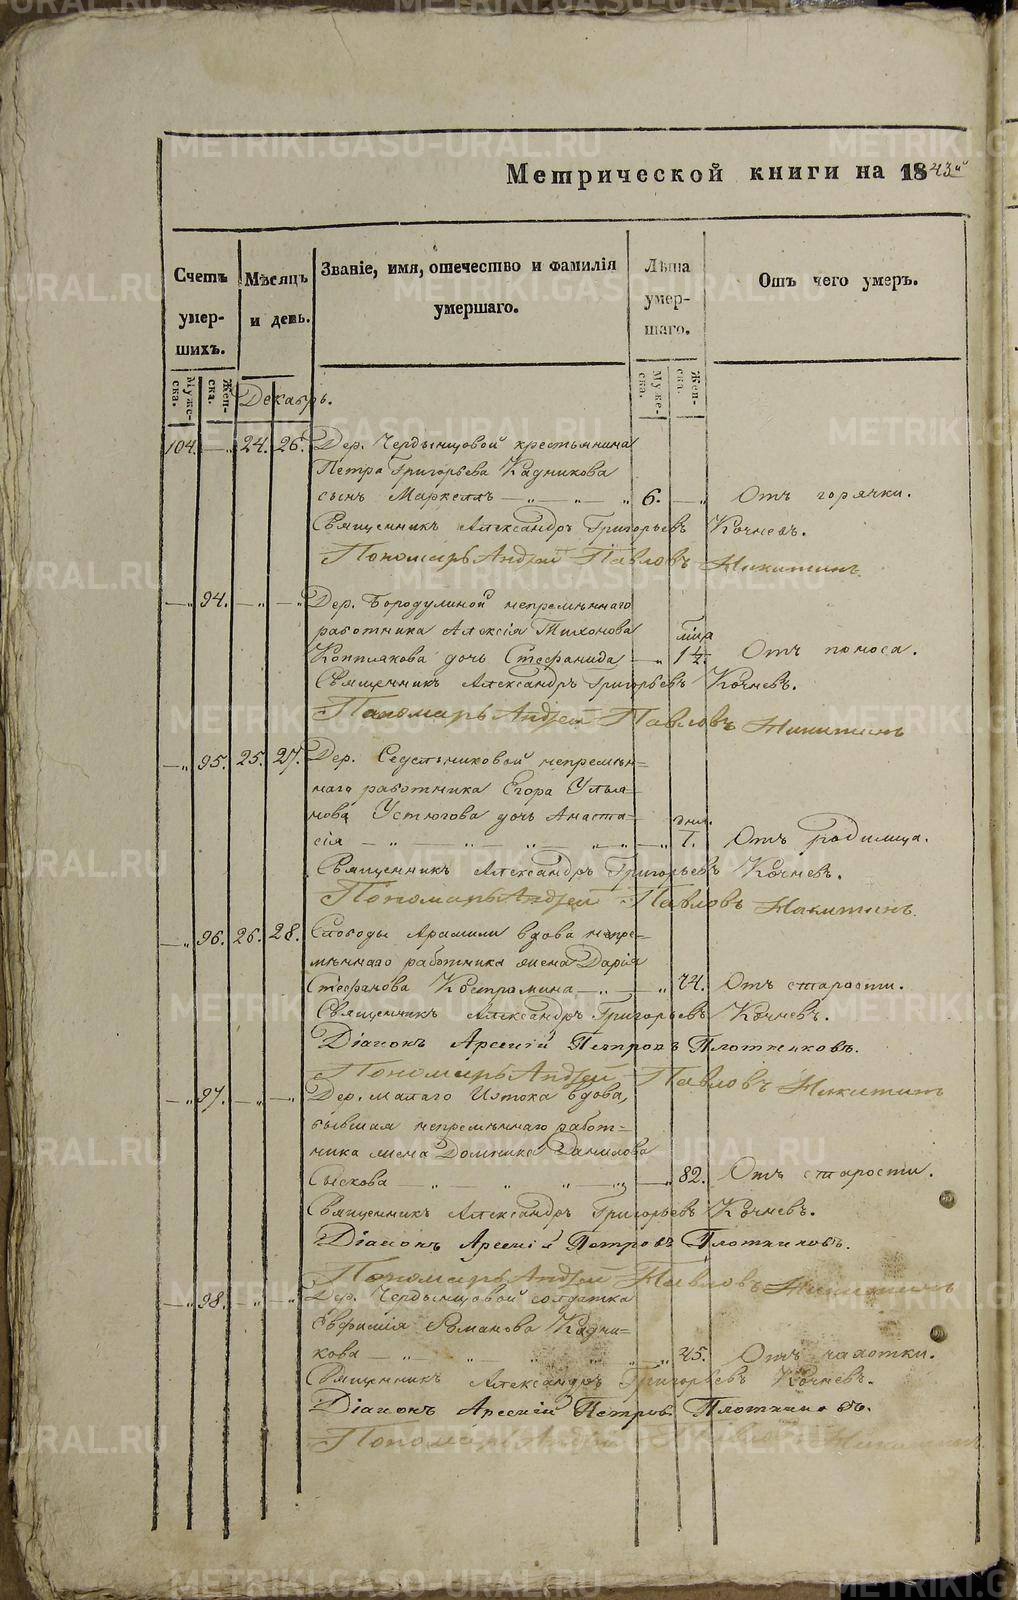 Метрической книги на 1843й
Счетъ умершихъ.
Мѣсяцъ и день.
Званіе, имя, отечество и фамилія умершаго.
Лѣта умершаго.
Отъ чего умеръ.
Мужеска. Женска.
Мужеска. Женска.
Декабрь.
104. — 24. 26. Дер. Чердынцовой крестьянина
Петра Григорьева Кадникова
сынъ Маркеллъ — 6. — Отъ горячки.
Священникъ Александръ Григорьевъ Кочневъ.
Пономарь Андрей Павловъ Никитинъ.
— 94. — — Дер. Бородулиной непремѣннаго
работника Алексія Тихонова
Коптякова дочь Стефанида — 1½. Отъ поноса.
Священникъ Александръ Григорьевъ Кочневъ.
Пономарь Андрей Павловъ Никитинъ
— 95. 25. 27. Дер. Седельниковой непремѣн=
наго работника Егора Улья=
нова Устюгова дочь Анаста=
сія — дня. 1. Отъ родимца.
Священникъ Александръ Григорьевъ Кочневъ.
Пономарь Андрей Павловъ Никитинъ.
— 96. 26. 28. Слободы Арамили вдова непре=
мѣннаго работника жена Дарія
Стефанова Костромина — 74. Отъ старости.
Священникъ Александръ Григорьевъ Кочневъ.
Діаконъ Арсеній Петровъ Плотниковъ.
Пономарь Андрей Павловъ Никитинъ
— 97. — — Дер. малаго Истока вдова,
бывшая непремѣннаго работ=
ника жена Домника Данилова
Сыскова — 82. Отъ старости.
Священникъ Александръ Григорьевъ Кочневъ.
Діаконъ Арсеній Петровъ Плотниковъ.
Пономарь Андрей Павловъ Никитинъ
— 98. — — Дер. Чердынцовой солдатка
Евфимія Романова Кадни=
кова — 45. Отъ чахотки.
Священникъ Александръ Григорьевъ Кочневъ.
Діаконъ Арсеній Петровъ Плотниковъ.
Пономарь Андрей Павловъ Никитинъ.
METRIKI.GASO-URAL.RU